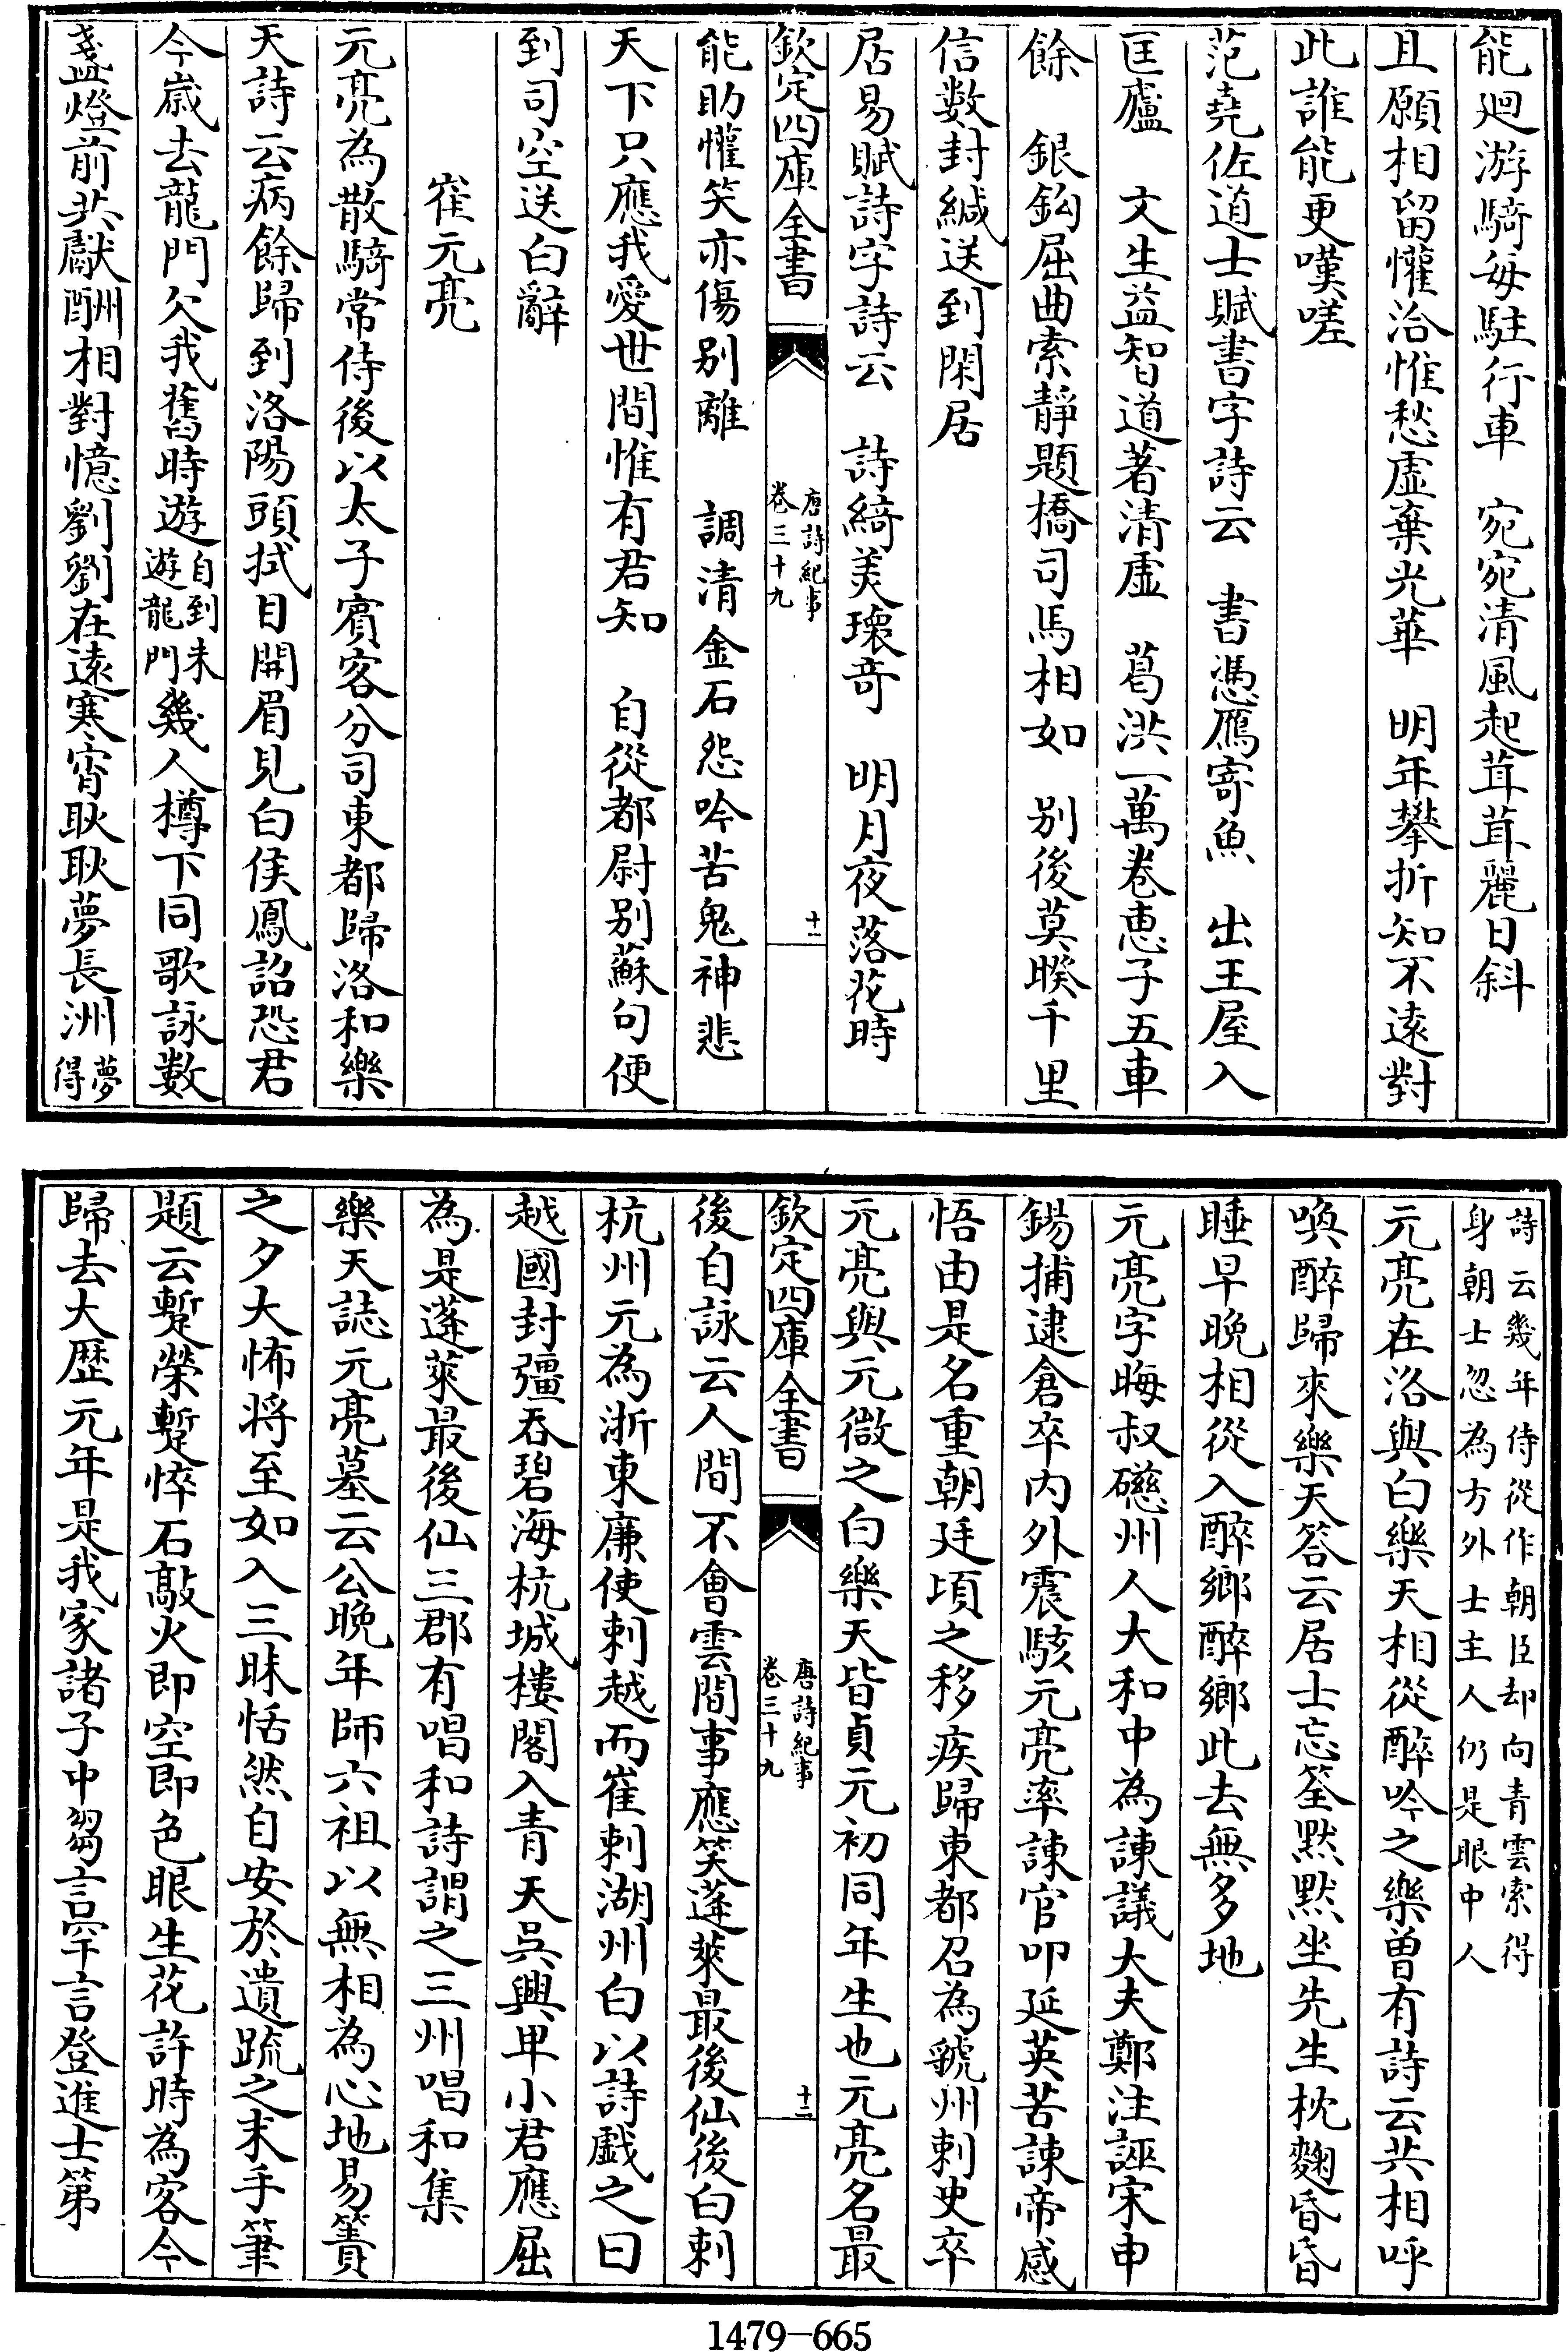 能廻游騎每駐行車　宛宛清風起茸茸麗日斜
且願相留懽洽惟愁虚棄光華　明年攀折知不遠對
此誰能更嘆嗟
范堯佐道士賦書字詩云　書憑雁寄魚　出王屋入
匡廬　文生益智道著清虚　葛洪一萬卷恵子五車
餘　銀鈎屈曲索靜題橋司馬相如　别後莫暌千里
信數封緘送到閑居
居易賦詩字詩云　詩綺美瓌奇　明月夜落花時
欽定四庫全書　唐詩紀事卷三十九　十一
能助懽笑亦傷别離　調清金石怨吟苦鬼神悲
天下只應我愛世間惟有君知　自從都尉别蘇句便
到司空送白辭
崔元亮
元亮為散騎常侍後以太子賓客分司東都歸洛和樂
天詩云病餘歸到洛陽頭拭目開眉見白侯鳳詔恐君
今嵗去龍門欠我舊時遊自到未遊龍門幾人樽下同歌詠數
盞燈前共獻酬相對憶劉劉在遠寒宵耿耿夢長洲夢得
詩云幾年侍從作朝臣却向青雲索得
身朝士忽為方外士主人仍是眼中人
元亮在洛與白樂天相從醉吟之樂曽有詩云共相呼
喚醉歸來樂天答云居士忘筌黙黙坐先生枕麴昏昏
睡早晚相從入醉鄉醉鄉此去無多地
元亮字晦叔磁州人大和中為諫議大夫鄭注誣宋申
錫捕逮倉卒内外震駭元亮率諫官叩延英苦諫帝感
悟由是名重朝廷頃之移疾歸東都召為虢州刺史卒
元亮與元微之白樂天皆貞元初同年生也元亮名最
欽定四庫全書　唐詩紀事卷三十九　十二
後自詠云人間不會雲間事應笑蓬萊最後仙後白刺
杭州元為浙東廉使刺越而崔刺湖州白以詩戲之曰
越國封疆吞碧海杭城樓閣入青天吳興卑小君應屈
為是蓬萊最後仙三郡有唱和詩謂之三州唱和集
樂天誌元亮墓云公晚年師六祖以無相為心地易簀
之夕大怖将至如入三昧恬然自安於遺疏之末手筆
題云蹔榮蹔悴石敲火即空即色眼生花許時為客今
歸去大厯元年是我家諸子中芻言罕言登進士第
1479-665